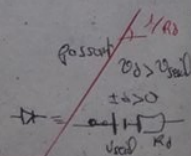 1/Rd
passant
vd > Vseuil
id > 0
=
Vseuil Rd